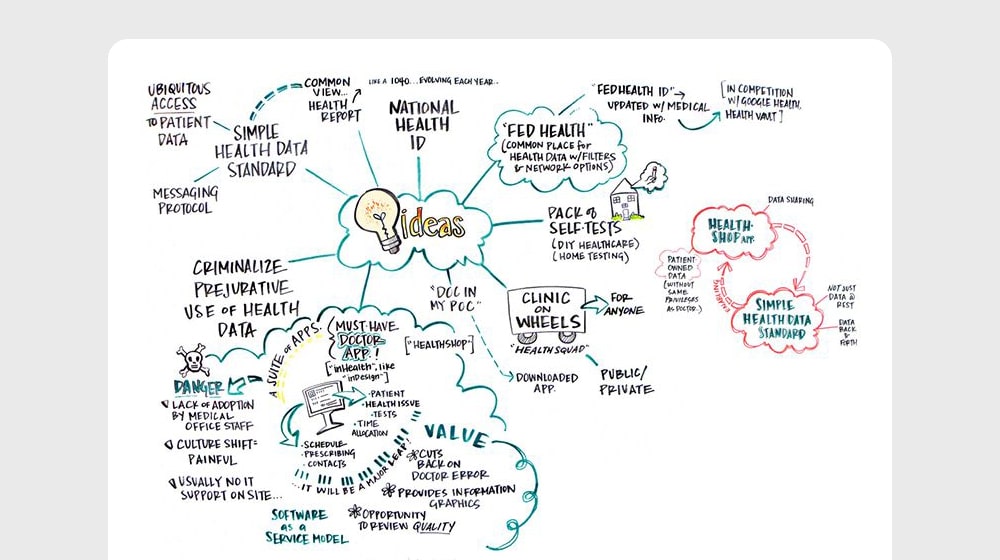 UBIQUITOUS
ACCESS
TO PATIENT
DATA
SIMPLE
HEALTH DATA
STANDARD
MESSAGING
PROTOCOL
COMMON
VIEW...
HEALTH
REPORT
LIKE A 1040... EVOLVING EACH YEAR...
NATIONAL
HEALTH
ID
"FED HEALTH"
(COMMON PLACE for
HEALTH DATA W/FILTERS
& NETWORK OPTIONS)
"FEDHEALTH ID"
UPDATED W/ MEDICAL
INFO.
[IN COMPETITION
W/ GOOGLE HEALTH,
HEALTH VAULT]
ideas
PACK of
SELF-TESTS
(DIY HEALTHCARE)
(HOME TESTING)
DATA SHARING
HEALTH-
SHOP APP.
PATIENT-
OWNED
DATA
(WITHOUT
SAME
PRIVILEGES
AS DOCTOR.)
SIMPLE
HEALTH DATA
STANDARD
NOT JUST
DATA @
REST
DATA
BACK &
FORTH
CRIMINALIZE
PREJURATIVE
USE OF HEALTH
DATA
"DOC IN
MY POC"
CLINIC
ON
WHEELS
"HEALTH SQUAD"
FOR
ANYONE
PUBLIC/
PRIVATE
DOWNLOADED
APP.
A SUITE of APPS.
MUST-HAVE
DOCTOR
APP!
["inHealth", like
"inDesign"]
["HEALTHSHOP"]
• PATIENT
• HEALTH ISSUE
• TESTS
• TIME
ALLOCATION
• SCHEDULE
• PRESCRIBING
• CONTACTS
...IT WILL BE A MAJOR LEAP!
DANGER
LACK OF ADOPTION
BY MEDICAL
OFFICE STAFF
CULTURE SHIFT=
PAINFUL
USUALLY NO IT
SUPPORT ON SITE...
VALUE
CUTS
BACK ON
DOCTOR ERROR
PROVIDES INFORMATION
GRAPHICS
OPPORTUNITY
TO REVIEW QUALITY
SOFTWARE
as a
SERVICE MODEL